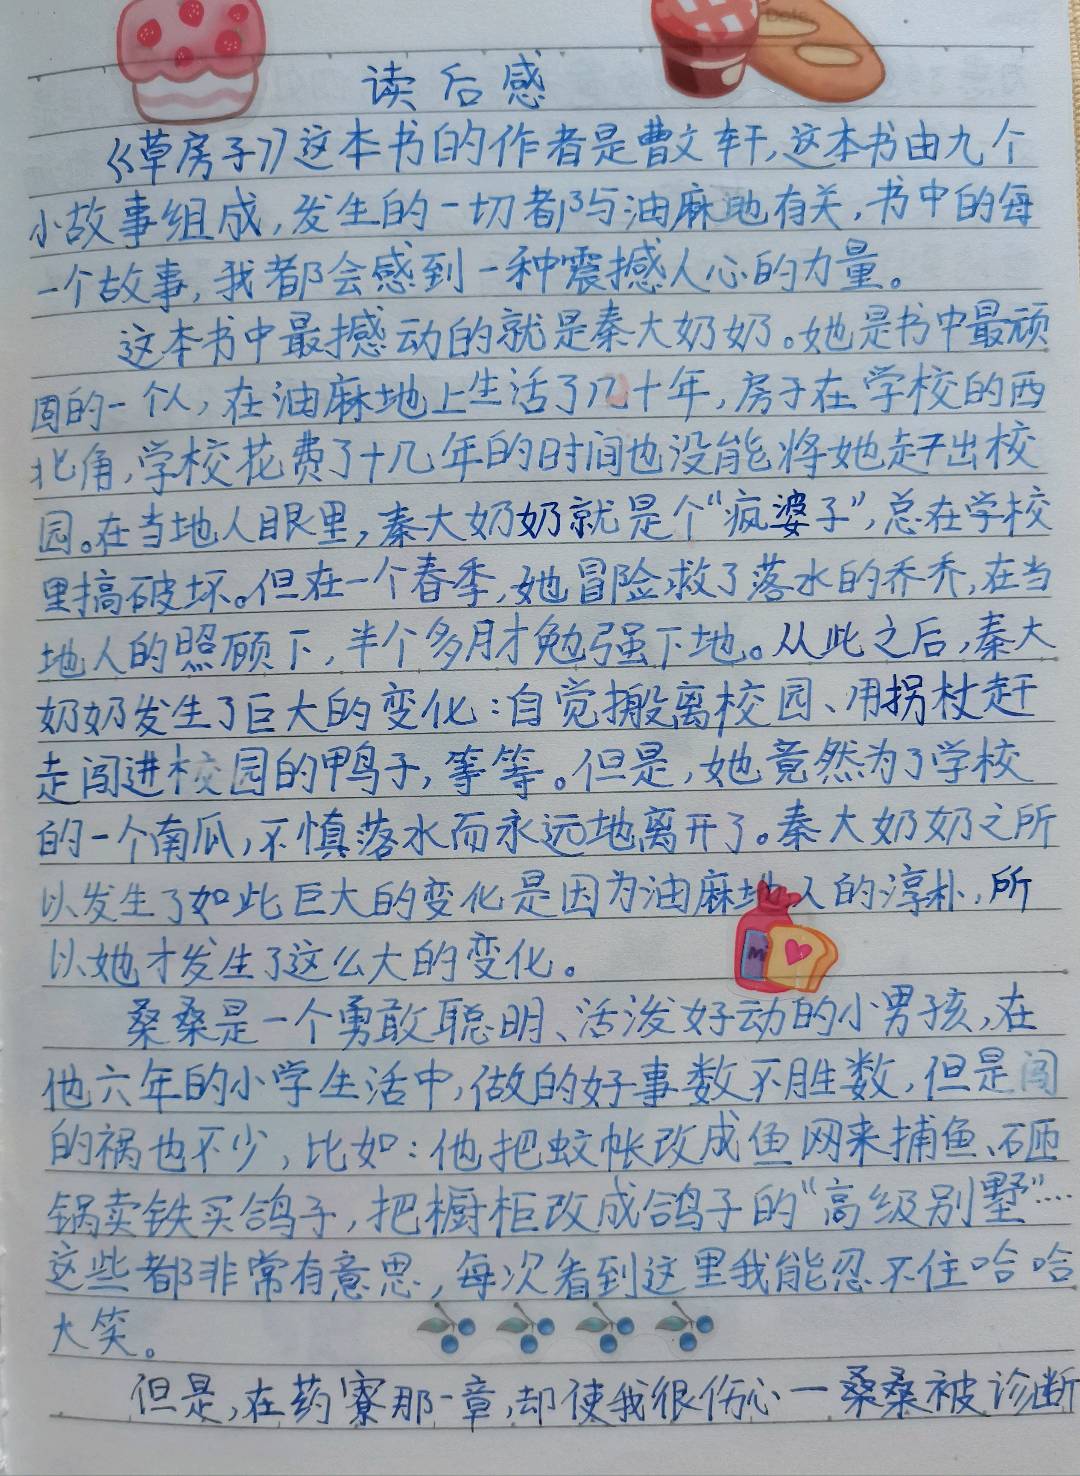 读后感
《草房子》这本书的作者是曹文轩,这本书由九个
小故事组成,发生的一切都与油麻地有关,书中的每
一个故事,我都会感到一种震撼人心的力量。
这本书中最撼动的就是秦大奶奶。她是书中最顽
固的一个人,在油麻地上生活了几十年,房子在学校的西
北角,学校花费了十几年的时间也没能将她赶出校
园。在当地人眼里,秦大奶奶就是个“疯婆子”,总在学校
里搞破坏。但在一个春季,她冒险救了落水的乔乔,在当
地人的照顾下,半个多月才勉强下地。从此之后,秦大
奶奶发生了巨大的变化:自觉搬离校园、用拐杖赶
走闯进校园的鸭子,等等。但是,她竟然为了学校
的一个南瓜,不慎落水而永远地离开了。秦大奶奶之所
以发生了如此巨大的变化是因为油麻地人的淳朴,所
以她才发生了这么大的变化。
桑桑是一个勇敢聪明、活泼好动的小男孩,在
他六年的小学生活中,做的好事数不胜数,但是闯
的祸也不少,比如:他把蚊帐改成鱼网来捕鱼、砸
锅卖铁买鸽子,把橱柜改成鸽子的“高级别墅”…
这些都非常有意思,每次看到这里我能忍不住哈哈
大笑。
但是,在药寮那一章,却使我很伤心一桑桑被诊断